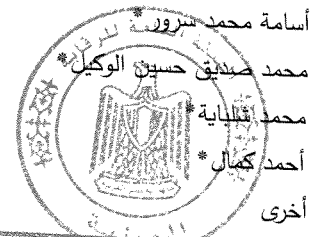 أسامة محمد سرور *
محمد صديق حسين الوكيل *
محمد شلباية *
أحمد كمال *
أخرى